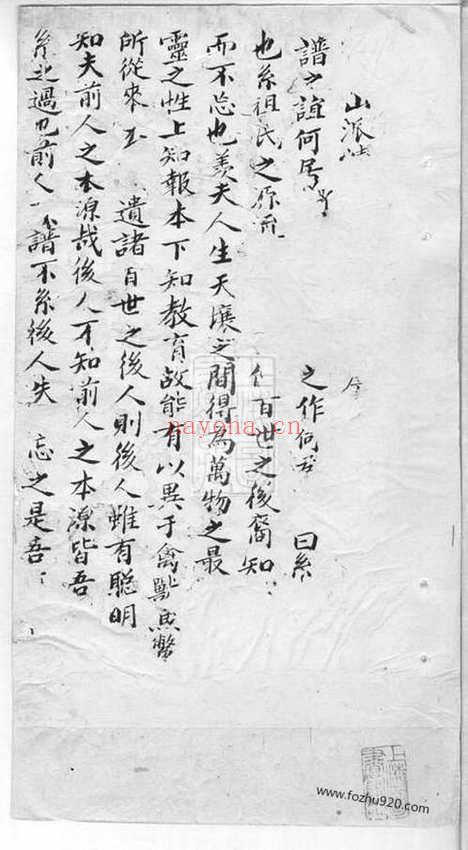 山派
譜之誼何居 之作何 曰系
也系祖氏之 百世之後裔知
而不忘也羨夫人生天壤之間得為萬物之最
靈之性上知報本下知教育故能有以異于禽獸
所從來 遺諸百世之後人則後人雖有聰明
知夫前人之本源哉後人不知前人之本源皆吾
系之過也前人不譜不系後人失 忘之是吾
nayona.cn
www.fozhu920.com